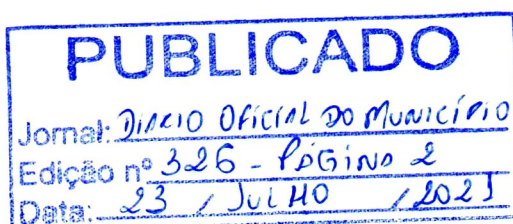 PUBLICADO
Jornal: DIARIO OFICIAL DO MUNICÍPIO
Edição nº 326 - PÁGINA 2
Data: 23 / JULHO / 2021